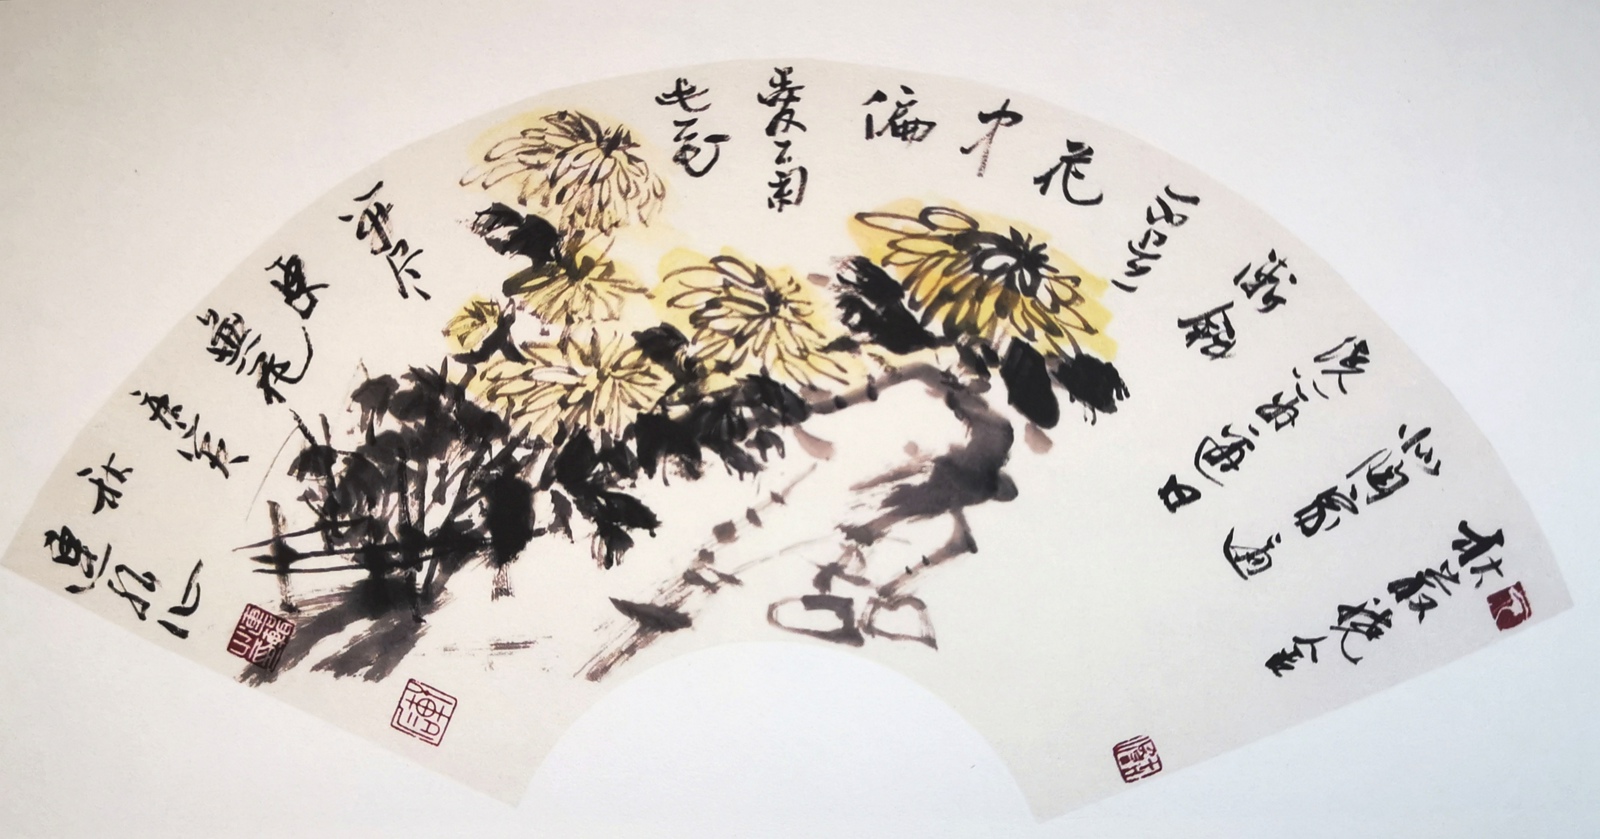 秋叢繞舍
似陶家遍
繞籬邊日
漸斜
不是
花
中
偏
愛菊
此花
開盡
更
無花
庚寅
秋